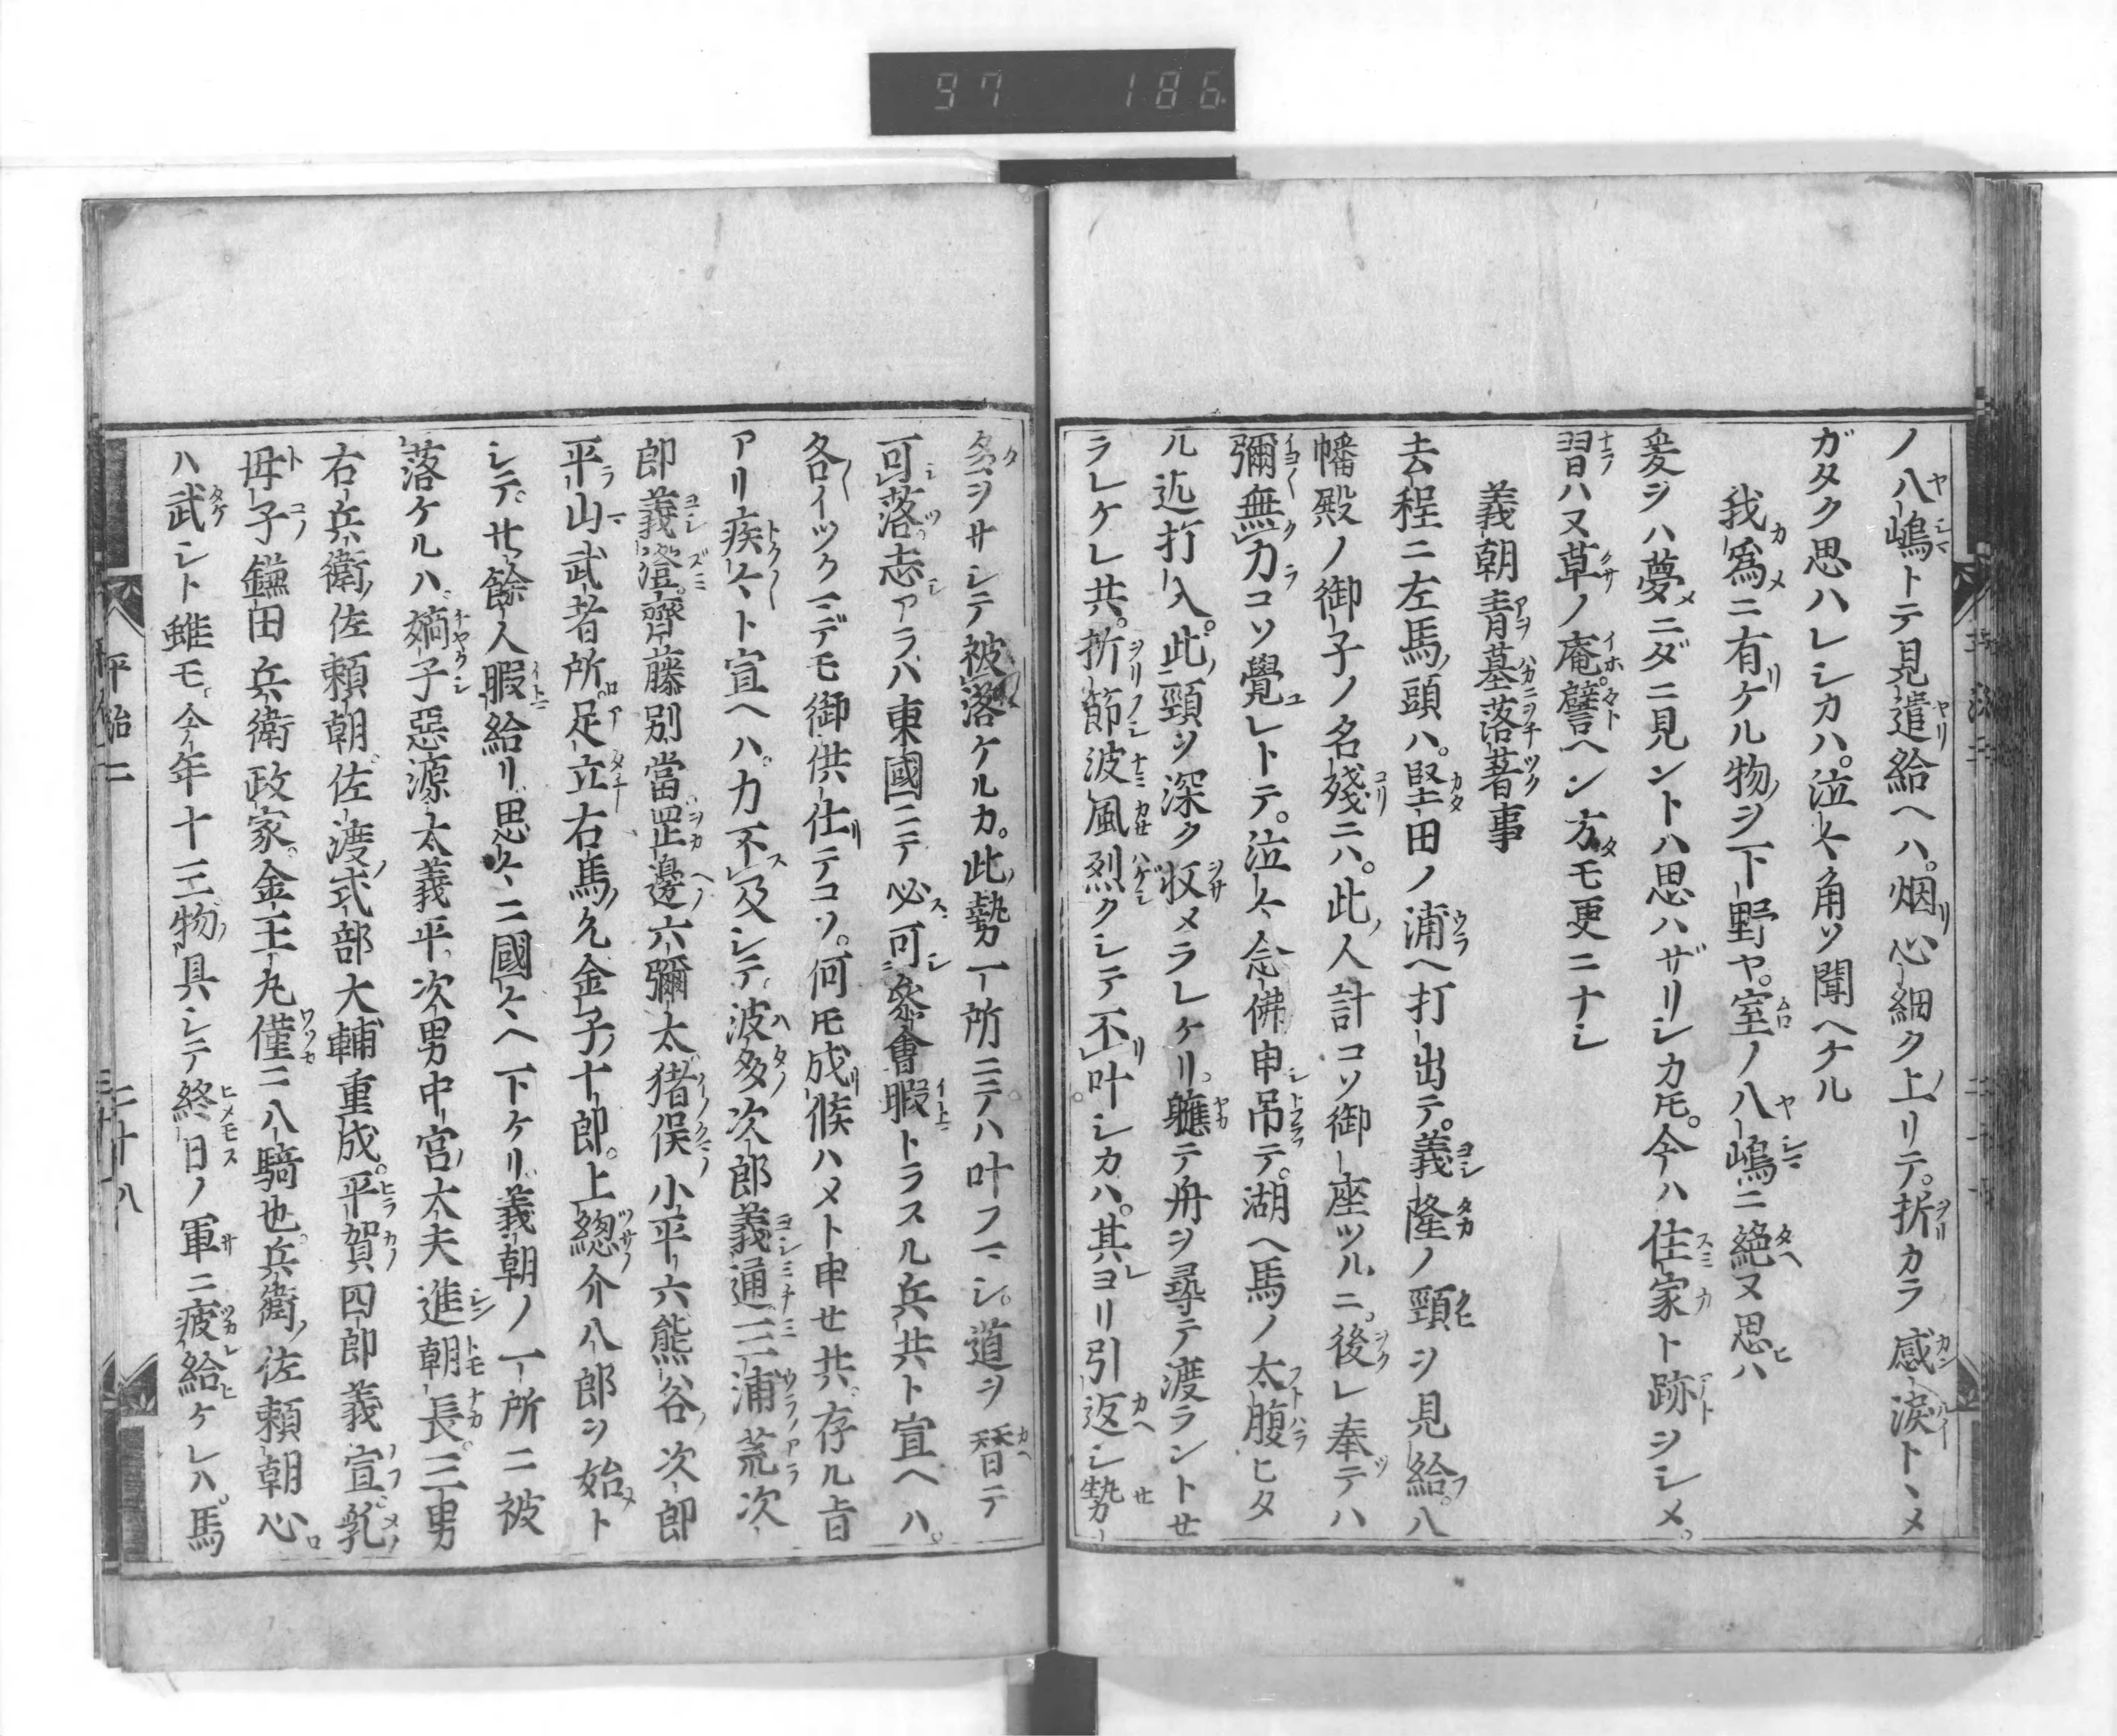 97 186
ノ八嶋トテ見遣給ヘハ。烟心細ク上リテ。折カラ感涙トヽメ
ガタク思ハレシカハ。泣々角ソ聞ヘケル
我爲ニ有ケル物ヲ下野ヤ。室ノ八嶋ニ絶ヌ思ハ
爰ヲハ夢ニダニ見ントハ思ハザリシカ𪜈。今ハ住家ト跡ヲシメ。
習ハヌ草ノ庵。譬ヘン方モ更ニナシ
義朝青墓落著事
去程ニ左馬頭ハ。堅田ノ浦ヘ打出テ。義隆ノ頸ヲ見給フ。八
幡殿ノ御子ノ名殘ニハ。此人計コソ御座ツルニ。後レ奉テハ
彌無力コソ覺レトテ。泣々念佛申吊テ。湖ヘ馬ノ太腹ヒタ
ル迄打入。此頸ヲ深ク收メラレケリ。軈テ舟ヲ尋テ渡ラントせ
ラレケレ共。折節波風烈クシテ不叶シカハ。其ヨリ引返シ勢
多ヲサシテ被落ケルカ。此勢一所ニテハ叶フマシ。道ヲ替テ
可落。志アラバ東國ニテ必可參會。暇トラスル兵共ト宣ヘハ。
各イツクマデモ御供仕テコソ。何𪜈成候ハメト申せ共。存ル旨
アリ疾々ト宣ヘハ。力不及シテ。波多次郎義通三浦荒次
郎義澄。齋藤別當罡邊六彌太猪俣小平六熊谷次郎
平山武者所足立右馬允金子十郎。上總介八郎ヲ始ト
シテ。廿餘人暇給リ思々ニ國々ヘ下ケリ。義朝ノ一所ニ被
落ケルハ。嫡子惡源太義平。次男中宮太夫進朝長。三男
右兵衛佐頼朝。佐渡式部大輔重成。平賀四郎義宣。乳
母子鎌田兵衛政家。金王丸僅ニ八騎也。兵衛佐頼朝心
ハ武シト雖モ。今年十三。物具シテ終日ノ軍ニ疲給ケレハ。馬
平治二
二十八